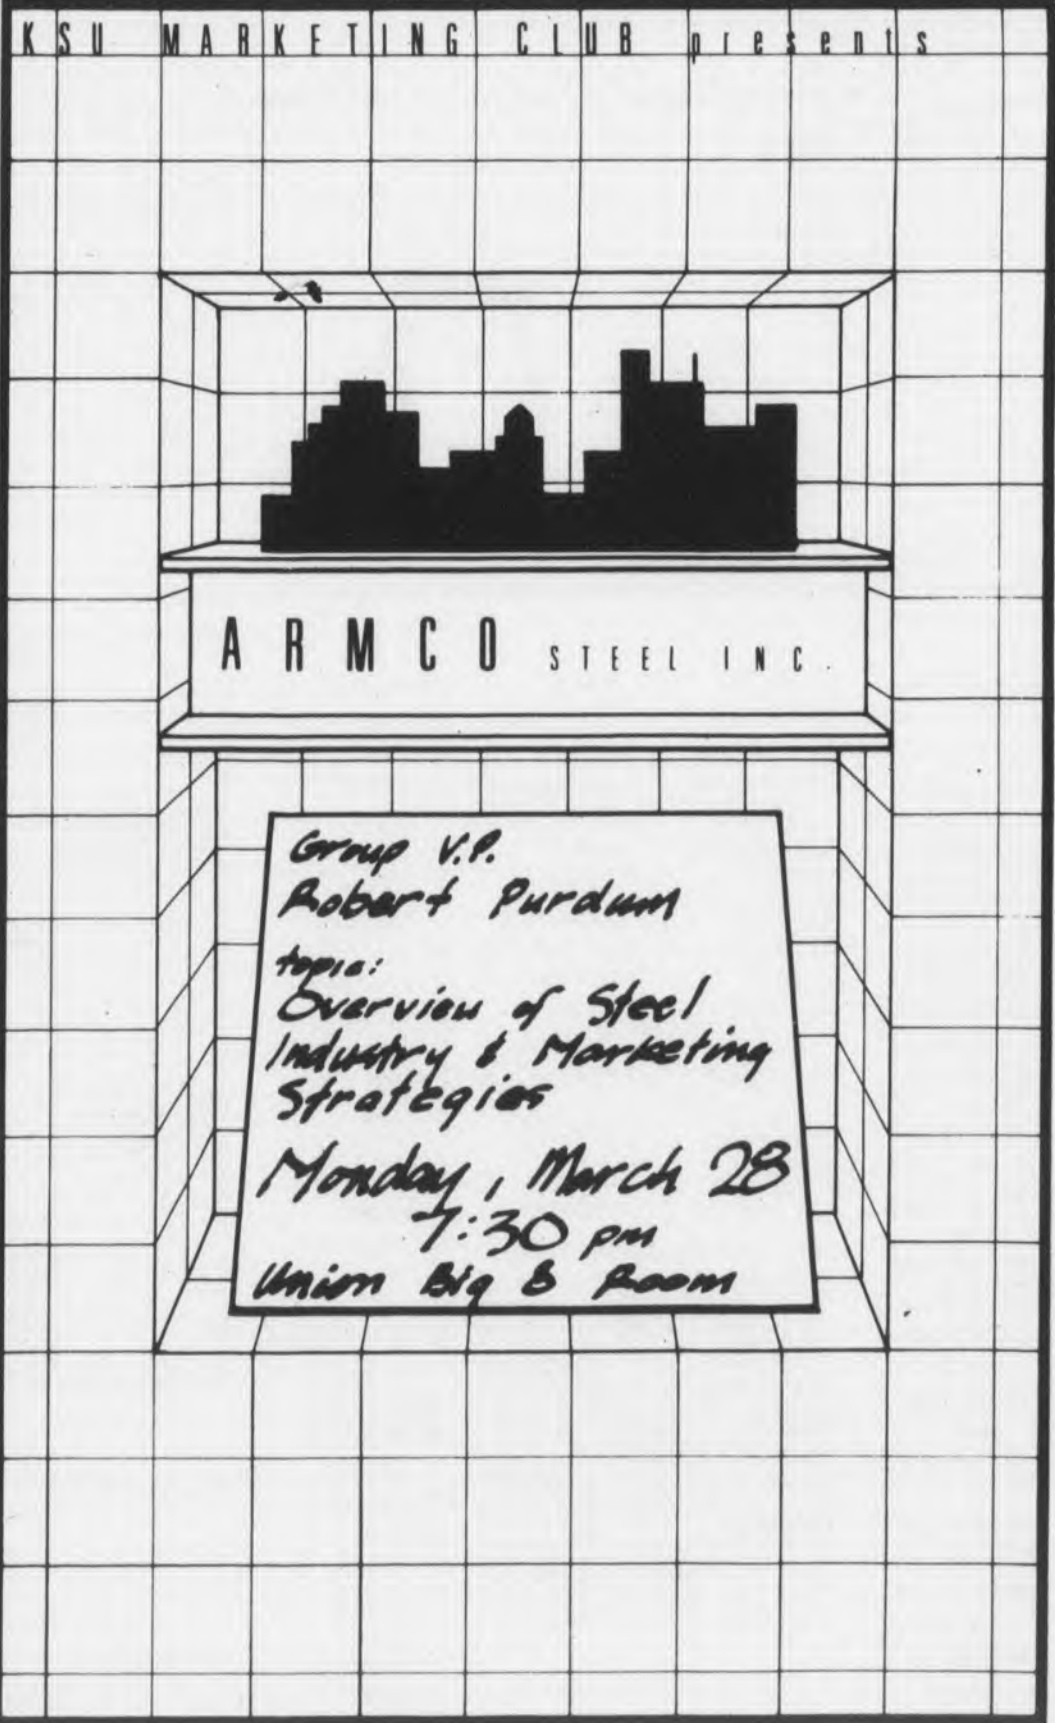 KSU MARKETING CLUB presents
ARMCO STEEL INC.
Group V.P.
Robert Purdum
topic:
Overview of Steel
Industry & Marketing
Strategies
Monday, March 28
7:30 pm
Union Big 8 Room